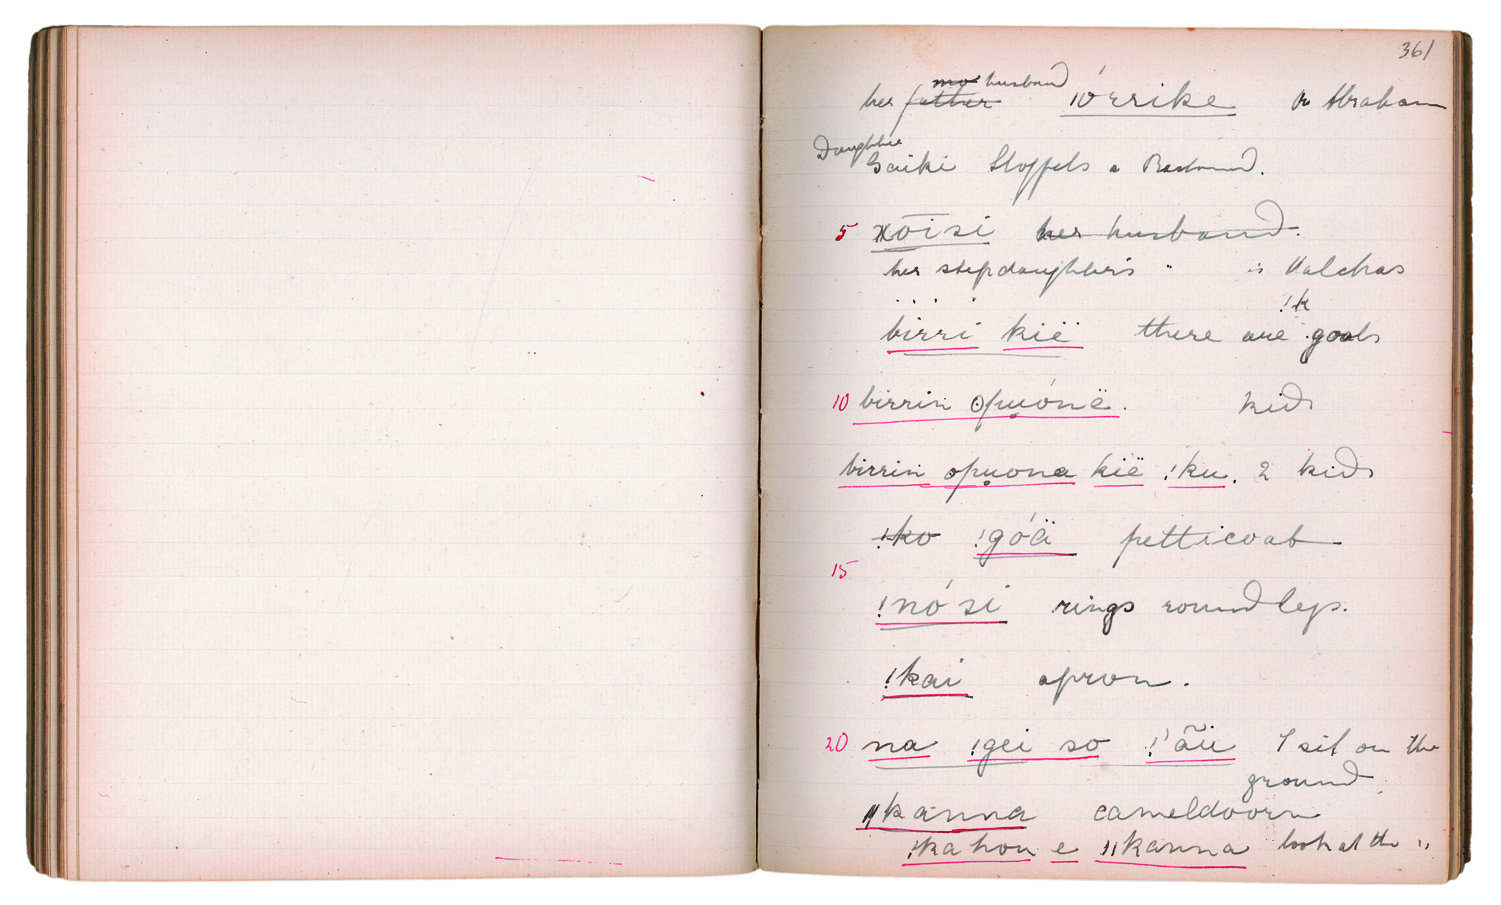 361
husband
her father ǀórrike or Abraham
Daughter
Gaiki Stoffels a Bastaard.
5 xōisi her husband.
her stepdaughter's " is
!k
birri kië there are goats
10 birrin ʘpu̩ónë. kids
birrin ʘpu̩ona kië !ku. 2 kids
!ko !góä petticoat
15
!nósi rings round legs.
!kai apron.
20 na !gei so !'ãü I sit on the
ground.
ǁkanna cameldoorn
!ka hon e ǁkanna look at the "